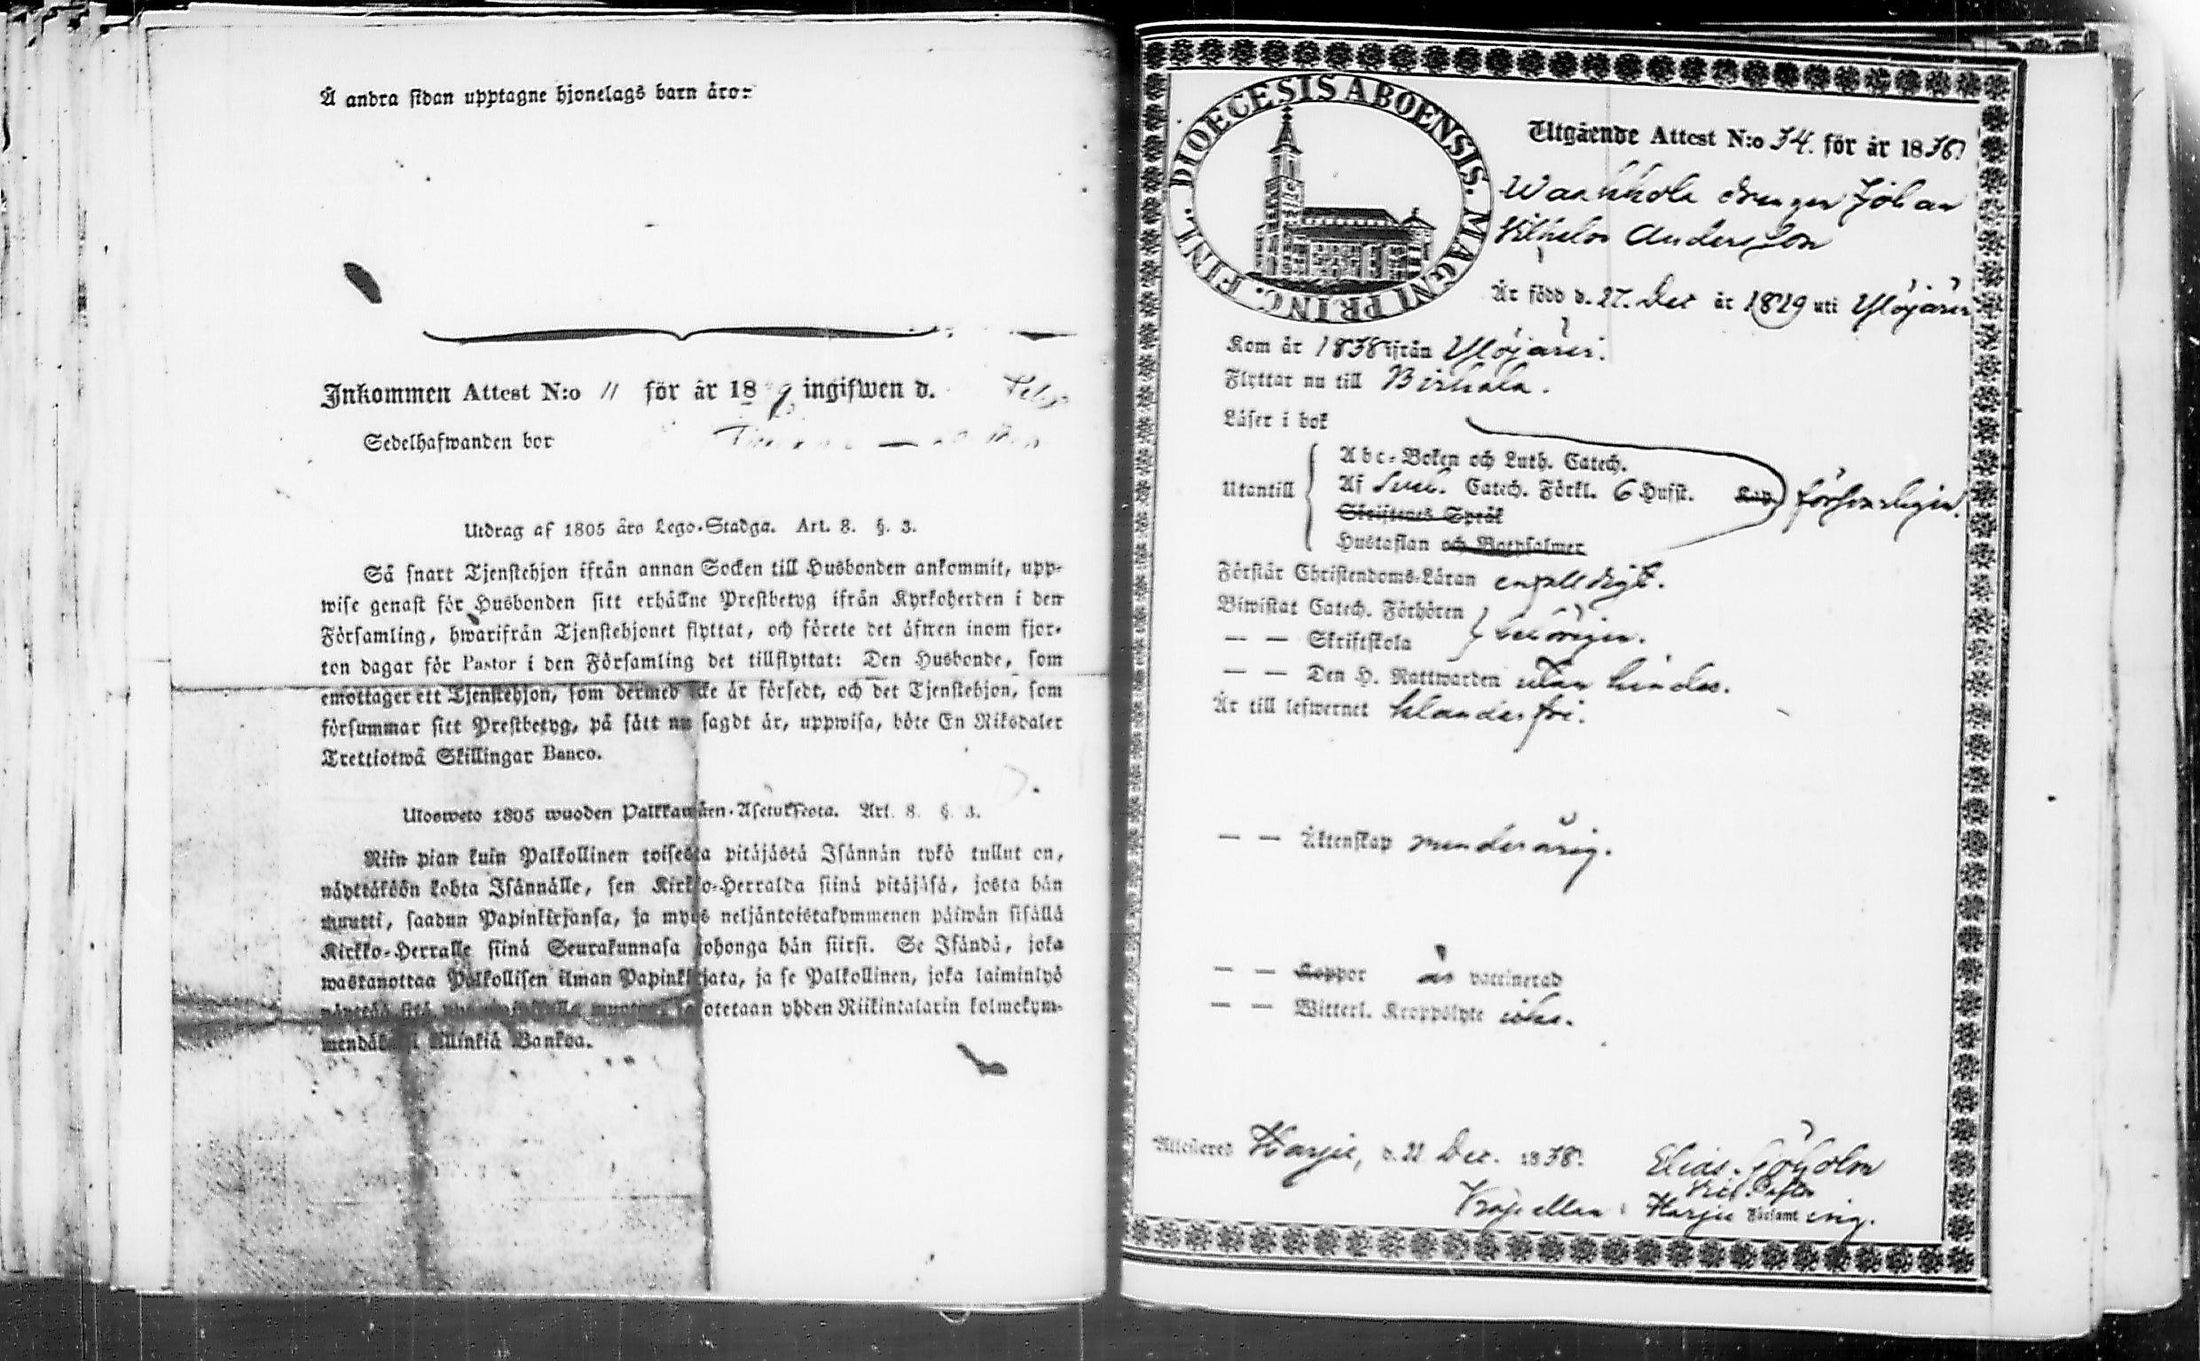 Å andra sidan upptagne hjonelags barn äro:
Inkommen Attest N:o 11 för år 18 9 ingifwen d. Feb
Sedelhafwanden bor
Utdrag af 1805 års Lego-Stadga. Art. 8. §. 3.
Så snart Tjenstehjon ifrån annan Socken till Husbonden ankommit, upp-
wise genast för Husbonden sitt erhållne Prestbetyg ifrån Kyrkoherden i den
Församling, hwarifrån Tjenstehjonet flyttat, och förete det äfwen inom fjor-
ton dagar för Pastor i den Församling det tillflyttat: Den Husbonde, som
emottager ett Tjenstehjon, som dermed icke är försedt, och det Tjenstehjon, som
försummar sitt Prestbetyg, på sätt nu sagdt är, uppwisa, böte En Riksdaler
Trettiotwå Skillingar Banco.
Ulosweto 1805 wuoden Palkkawäen-Asetuksesta. Art. 8. §. 3.
Niin pian kuin Palkollinen toisesta pitäjästä Isännän tykö tullut on,
näyttäköön kohta Isännälle, sen Kirkko-Herralda siinä pitäjäsä, josta hän
muutti, saadun Papinkirjansa, ja myös neljäntoistakymmenen päiwän sisällä
Kirkko-Herralle siinä Seurakunnasa johonga hän siirsi. Se Isändä, joka
wastanottaa Palkollisen ilman Papinkirjata, ja se Palkollinen, joka laiminlyö
näyttää sitä sakotetaan yhden Riikintalarin kolmekym-
mendä killinkiä Bankoa.
DIOECESIS ABOENSIS. MAGNI PRINC. FINL.
Utgående Attest N:o 34. för år 1838
Waahhola drengen Johan
Vilhelm Andersson
Är född d. 27. Dec år 1819 uti Ylöjärvi
Kom år 1838 ifrån Ylöjärvi.
Flyttar nu till Birkala.
Läser i bok
Abc-Boken och Luth. Catech.
Utantill Af Sveb. Catech. Förkl. 6 Hufst. Kap. försvarligen.
Skriftenes Språk
Hustaflan och Botpsalmer
Förstår Christendoms-Läran enfaldigt.
Biwistat Catech. Förhören
— — Skriftskola behörigen.
— — Den H. Nattwarden utan hinder.
Är till lefwernet klanderfri.
— — Äktenskap minderårig.
— — Koppor är vaccinerad
— — Witterl. Kroppslyte icke.
Attesteres Harju, d. 22 Dec. 1838.
Elias
Vice Pastor
Kapellan i Harju Församling.